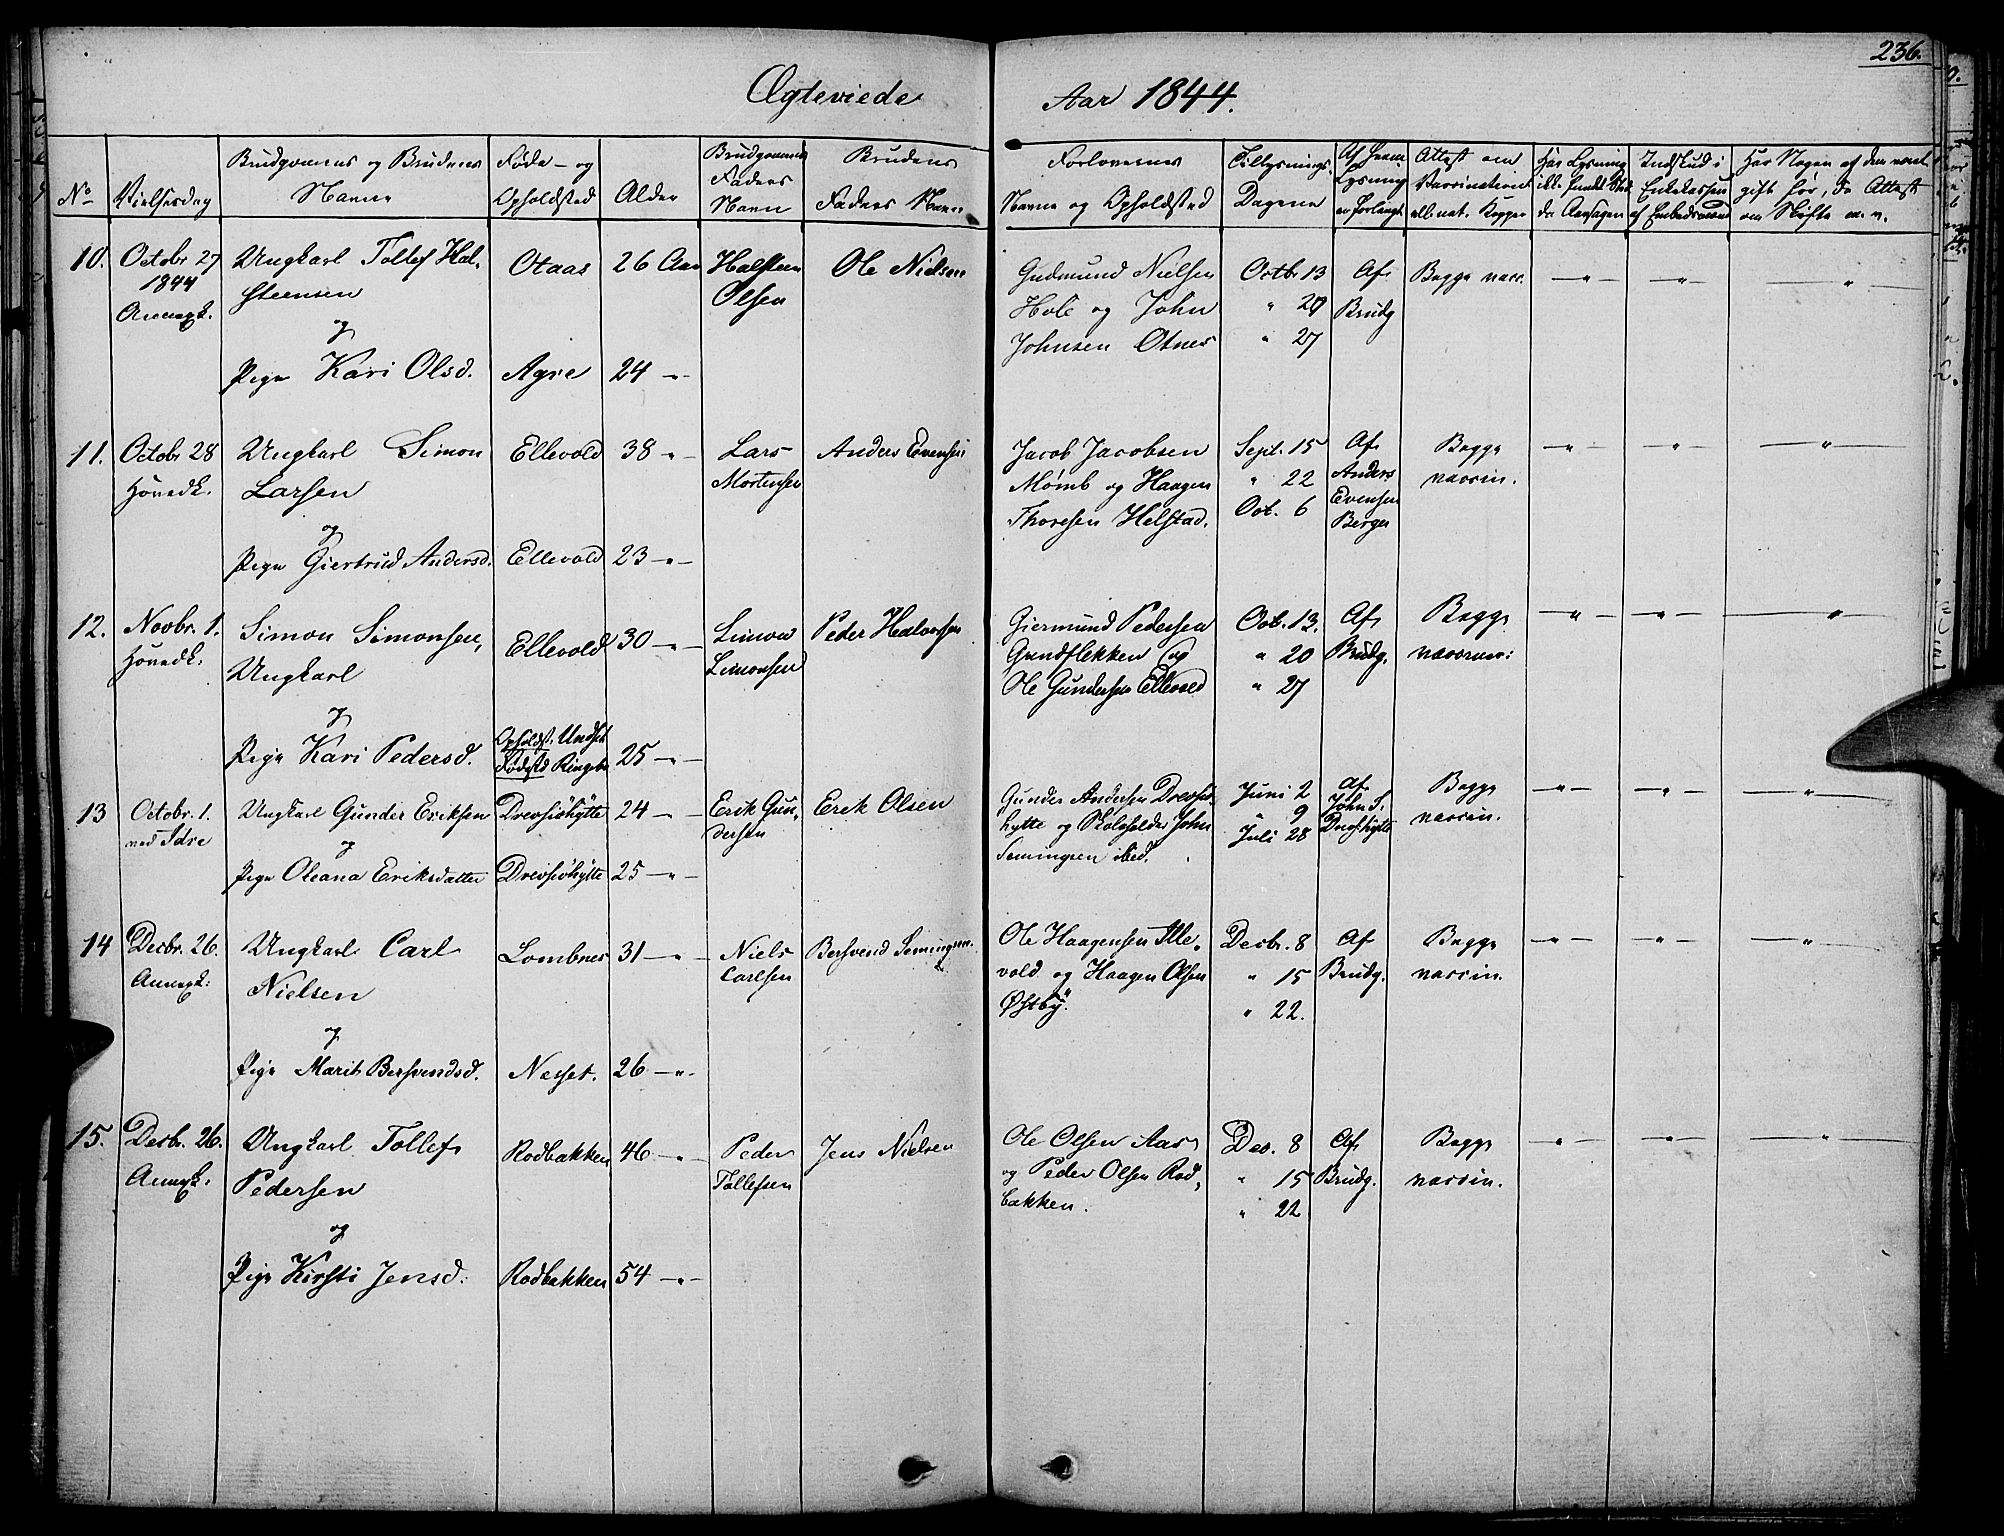 236.
Ægteviede
Aar 1844.
No
Vielsesdag
Brudgommens og Brudens
Navne
Føde- og
Opholdsted
Alder
Brudgommens
Faders
Navn
Brudens
Faders Navn
Forlovernes
Navne og Opholdsted
Tillysnings-
Dagene
Af hvem
Lysning
er forlangt
Attest om
Vaccination
ell. nat. Kopper
Har Lysning
ikke fundet Sted,
da Aarsagen
Indskud i
Enkekassen
af Embedsmænd
Har Nogen af dem været
gift før, da Attest
om Skifte m. v.
10.
Octobr 27
1844
Annexk.
Ungkarl Tollef Hal-
steensen
og
Pige Kari Olsd.
Otaas
Agre
26 Aar
24 -"-
Halsteen
Olsen
Ole Nielsen
Gudmund Nielsen
Hole og John
Johnsen Otnes
Octb. 13
" 20
" 27
Af
Brudg
Begge vacc.
11.
Octobr 28
Hovedk.
Ungkarl Simon
Larsen
og
Pige Giertrud Andersd.
Ellevold
Ellevold
38 -"-
23 -"-
Lars
Mortensen
Anders Evensen
Jacob Jacobsen
Mømb og Haagen
Thoresen Helstad.
Sept. 15
" 22
Oct. 6
Af
Anders
Evensen
Berger
Begge
vaccin.
12.
Novbr. 1.
Hovedk.
Simon Simonsen,
Ungkarl
og
Pige Kari Pedersd.
Ellevold
Opholdst. Undset
Fødested Ringebu
30 -"-
25 -"-
Simon
Simonsen
Peder Halvorsen
Giermund Pedersen
Gundflekken og
Ole Gundersen Ellevold
Oct. 13.
" 20
" 27
Af
Brudg.
Begge
vaccin:
13
Octobr. 1.
ved Idre
Ungkarl Gunder Eriksen
og
Pige Oleana Eriksdatter
Drevsiøhytte
Drevsiøhytte
24 -"-
25 -"-
Erik Gun-
dersen
Erik Olsen
Gunder Andersen Drevsiø-
hytte og Skoleholder John
Semingsen ibid.
Juni 2
" 9
Juli 28
Af
John S.
Drefshytte
Begge
vaccin.
14
Decbr. 26.
Annexk:
Ungkarl Carl
Nielsen
og
Pige Marit Bersvendsd.
Lombnes
Nesset.
31 -"-
26 -"-
Niels
Carlsen
Bersvend Semingsen.
Ole Haagensen Elle-
vold og Haagen Olsen
Østby.
Decbr. 8
" 15
" 22.
Af
Brudg.
Begge
vaccin.
15.
Decbr. 26.
Annexk:
Ungkarl Tollef
Pedersen
og
Pige Kirsti Jensd:
Rodbakken
Rodbakken
46 -"-
54 -"-
Peder
Tollefsen
Jens Nielsen
Ole Olsen Aas
og Peder Olsen Rod-
bakken.
Dec. 8
" 15
" 22
Af
Brudg.
Begge
vaccin.